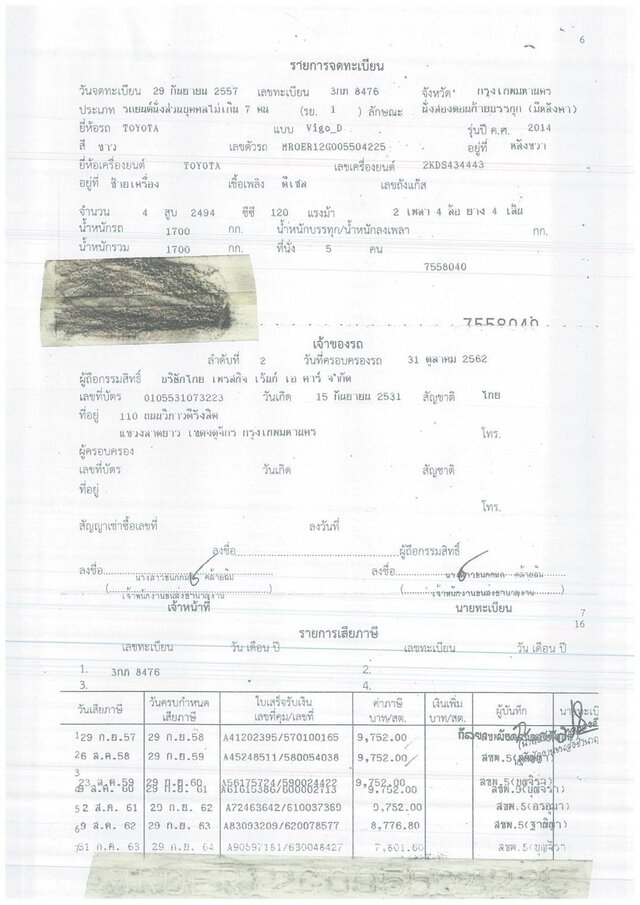 6
รายการจดทะเบียน
วันจดทะเบียน 29 กันยายน 2557 เลขทะเบียน 3กภ 8476 จังหวัด กรุงเทพมหานคร
ประเภท รถยนต์นั่งส่วนบุคคลไม่เกิน 7 คน (รย. 1 ) ลักษณะ นั่งสองตอนท้ายบรรทุก (มีหลังคา)
ยี่ห้อรถ TOYOTA แบบ Vigo_D รุ่นปี ค.ศ. 2014
สี ขาว เลขตัวรถ MROER12G005504225 อยู่ที่ หลังขวา
ยี่ห้อเครื่องยนต์ TOYOTA เลขเครื่องยนต์ 2KDS434443
อยู่ที่ ซ้ายเครื่อง เชื้อเพลิง ดีเซล เลขถังแก๊ส
จำนวน 4 สูบ 2494 ซีซี 120 แรงม้า 2 เพลา 4 ล้อ ยาง 4 เส้น
น้ำหนักรถ 1700 กก. น้ำหนักบรรทุก/น้ำหนักลงเพลา กก.
น้ำหนักรวม 1700 กก. ที่นั่ง 5 คน
7558040
7558040
เจ้าของรถ
ลำดับที่ 2 วันที่ครอบครองรถ 31 ตุลาคม 2562
ผู้ถือกรรมสิทธิ์ บริษัทไทย เพรสทิจ เร้นท์ เอ คาร์ จำกัด
เลขที่บัตร 0105531073223 วันเกิด 15 กันยายน 2531 สัญชาติ ไทย
ที่อยู่ 110 ถนนวิภาวดีรังสิต
แขวงลาดยาว เขตจตุจักร กรุงเทพมหานคร โทร.
ผู้ครอบครอง
เลขที่บัตร วันเกิด สัญชาติ
ที่อยู่
โทร.
สัญญาเช่าซื้อเลขที่ ลงวันที่
ลงชื่อ ผู้ถือกรรมสิทธิ์
ลงชื่อ ลงชื่อ
คล้ายฉิม คล้ายฉิม
(เจ้าพนักงานขนส่งชำนาญงาน) (เจ้าพนักงานขนส่งชำนาญงาน)
เจ้าหน้าที่ นายทะเบียน
7
16
รายการเสียภาษี
เลขทะเบียน วัน เดือน ปี เลขทะเบียน วัน เดือน ปี
1. 3กภ 8476 2.
3. 4.
วันเสียภาษี วันครบกำหนดเสียภาษี ใบเสร็จรับเงิน เลขที่คุม/เลขที่ ค่าภาษี บาท/สต. เงินเพิ่ม บาท/สต. ผู้บันทึก
1 29 ก.ย.57 29 ก.ย.58 A41202395/570100165 9,752.00
2 6 ส.ค.58 29 ก.ย.59 A45248511/580054038 9,752.00 สขพ.5
3 23 ส.ค.59 29 ก.ย.60 A56175724/590024422 9,752.00 สขพ.5
29 ก.ย. 61 9,752.00 สขพ.5
5 2 ส.ค. 61 29 ก.ย. 62 A72463642/610037369 9,752.00 สขพ.5(อรอุมา)
6 9 ส.ค. 62 29 ก.ย. 63 A83093209/620078577 8,776.80 สขพ.5(ฐาติมา)
7 31 ก.ค. 63 29 ก.ย. 64 A90597161/630048427 7,801.60 สขพ.5